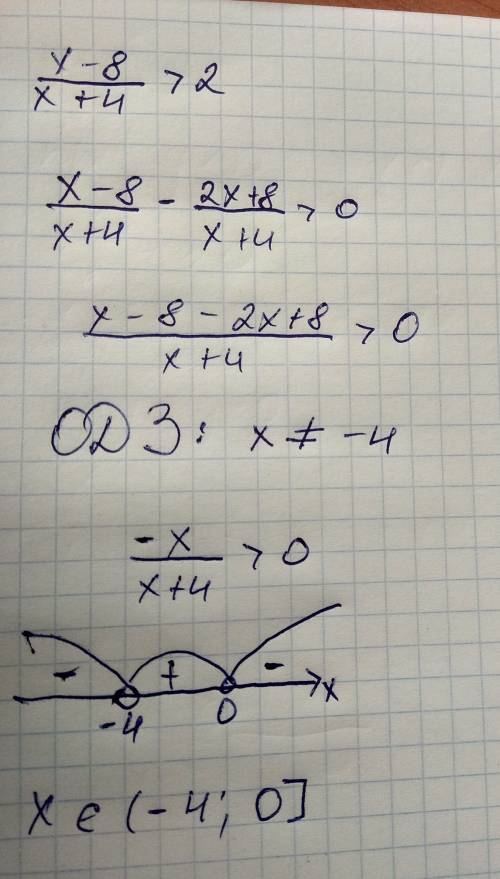 x-8/x+4 > 2
x-8/x+4 - 2x+8/x+4 > 0
x-8-2x+8/x+4 > 0
ОДЗ: x ≠ -4
-x/x+4 > 0
- + - x
-4 0
x ∈ (-4; 0]